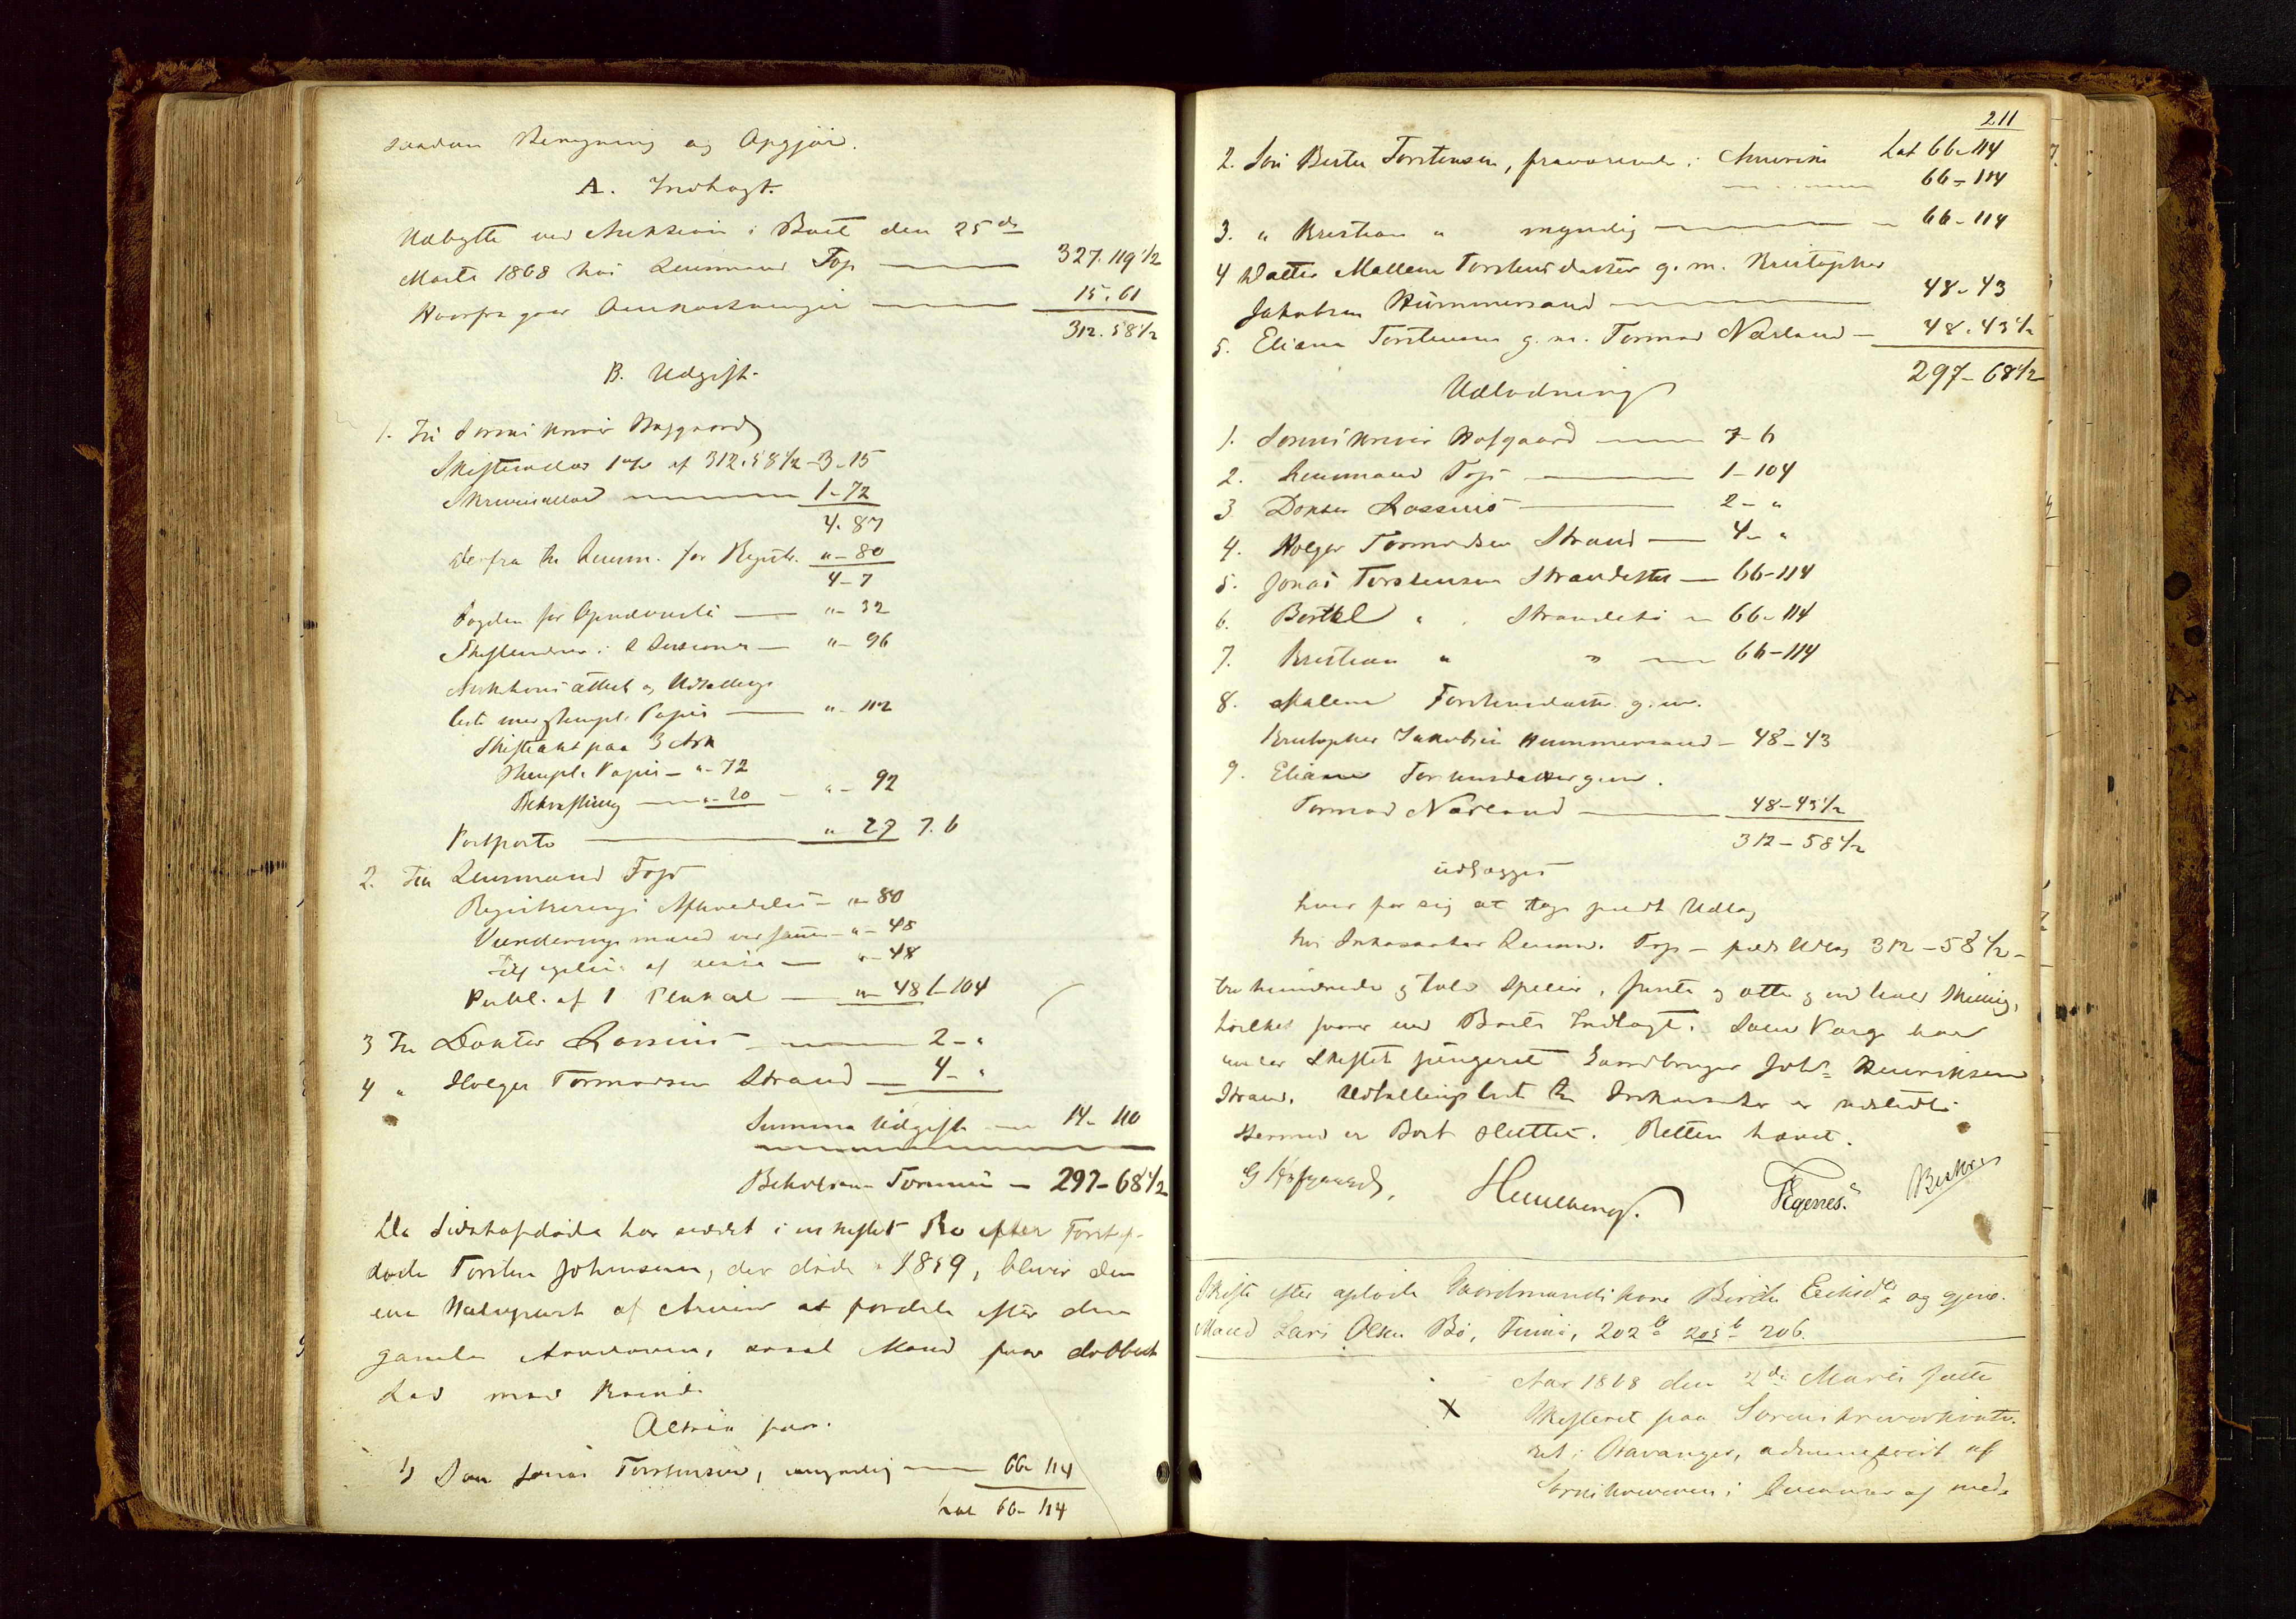 saadan Beregning og Opgjør.
A. Indtægt.
Udbytte ved Auktion i Boet den 25de
Marts 1868 hos Lensmand Fos 327.119 1/2
Hvorfra gaar Omkostninger 15.61
312.58 1/2
B. Udgift.
1. Til Sorenskriver Hofgaard
Skiftesalær 1 % af 312.58 1/2 - 3-15
Skriversalær 1-72
4.87
derfra til Lensm. for Registr. "-80
4-7
"-32
Skiftemænd i 2 Sessioner "-96
Auktions attest og Udtællings
liste med Stempl. Papir "-112
Skifteakt paa 3 Ark
Stempl. Papir - "-72
Bekræftning "-20 - "-92
Postporto "27 7.6
2. Til Lensmand Fos
Registrerings Afhændelse - "-80
Vurderingsmænd ved samme - "-48
af "-48
Publ. af 1 Plakat "-48 1-104
3 Til Doktor 2-"
4 " Holger Tormodsen Strand 4-"
Summa Udgift 14-110
Beholden Formue - 297-68 1/2
Da Sidstafdøde har siddet i uskiftet Bo efter Først af-
døde Torsten Johnsen, der døde 1859, bliver den
ene Halvpart af Arven at fordele efter den
gamle Arvelov, saaat Mand faar dobbelt
Lod mod Kvinde.
Altsaa faar.
1) Søn Jonas Torstensen, myndig 66-114
Lat 66-114
211
2. Søn Bertel Torstensen, fraværende i Amerika Lat 66-114
66-114
3. " Kristian " myndig 66-114
4 Datter Mallene Torstensdatter g. m. Kristopher
Jakobsen Hummersand 48-43
5. Eliane Torstensen g. m. Tormod Nærland 48.43 1/2
297-68 1/2
Udlodning
1. Sorenskriver Hofgaard 7-6
2. Lensmand Fos 1-104
3 Doktor 2-"
4. Holger Tormodsen Strand 4-"
5. Jonas Torstensen 66-114
6. Bertel " 66-114
7. Kristian " " 66-114
8. Malene Torstensdatter g. m.
Kristopher Jakobsen Hummersand - 48-43
9. Eliane Torstensdatter g. m.
Tormod Nærland 48-43 1/2
312-58 1/2
udlægges
hver for sig at tage fuldt Udlæg
hos Inkassator Lensm. Fos - fuldt Udlæg 312-58 1/2 -
tre hundrede og tolv Specier, femti og otte og en halv Skilling,
hvilket svarer med Boets Indtægt. Som Værge har
under Skiftet fungeret Gaardbruger Johs Henriksen
Strand. Udtællingsliste til Inkassator er udstedt.
Hermed er Boet sluttet. Retten hævet.
G Hofgaard.
Skifte efter afdøde Gaardmandskone Berthe Eriksda og gjenl.
Mand Lars Olsen Bø, 202b 205b 206.
Aar 1868 den 2den Marts sattes
X Skifteret paa Sorenskriverkonto-
ret i Stavanger, administreret af
Sorenskriveren i Overvær af med-